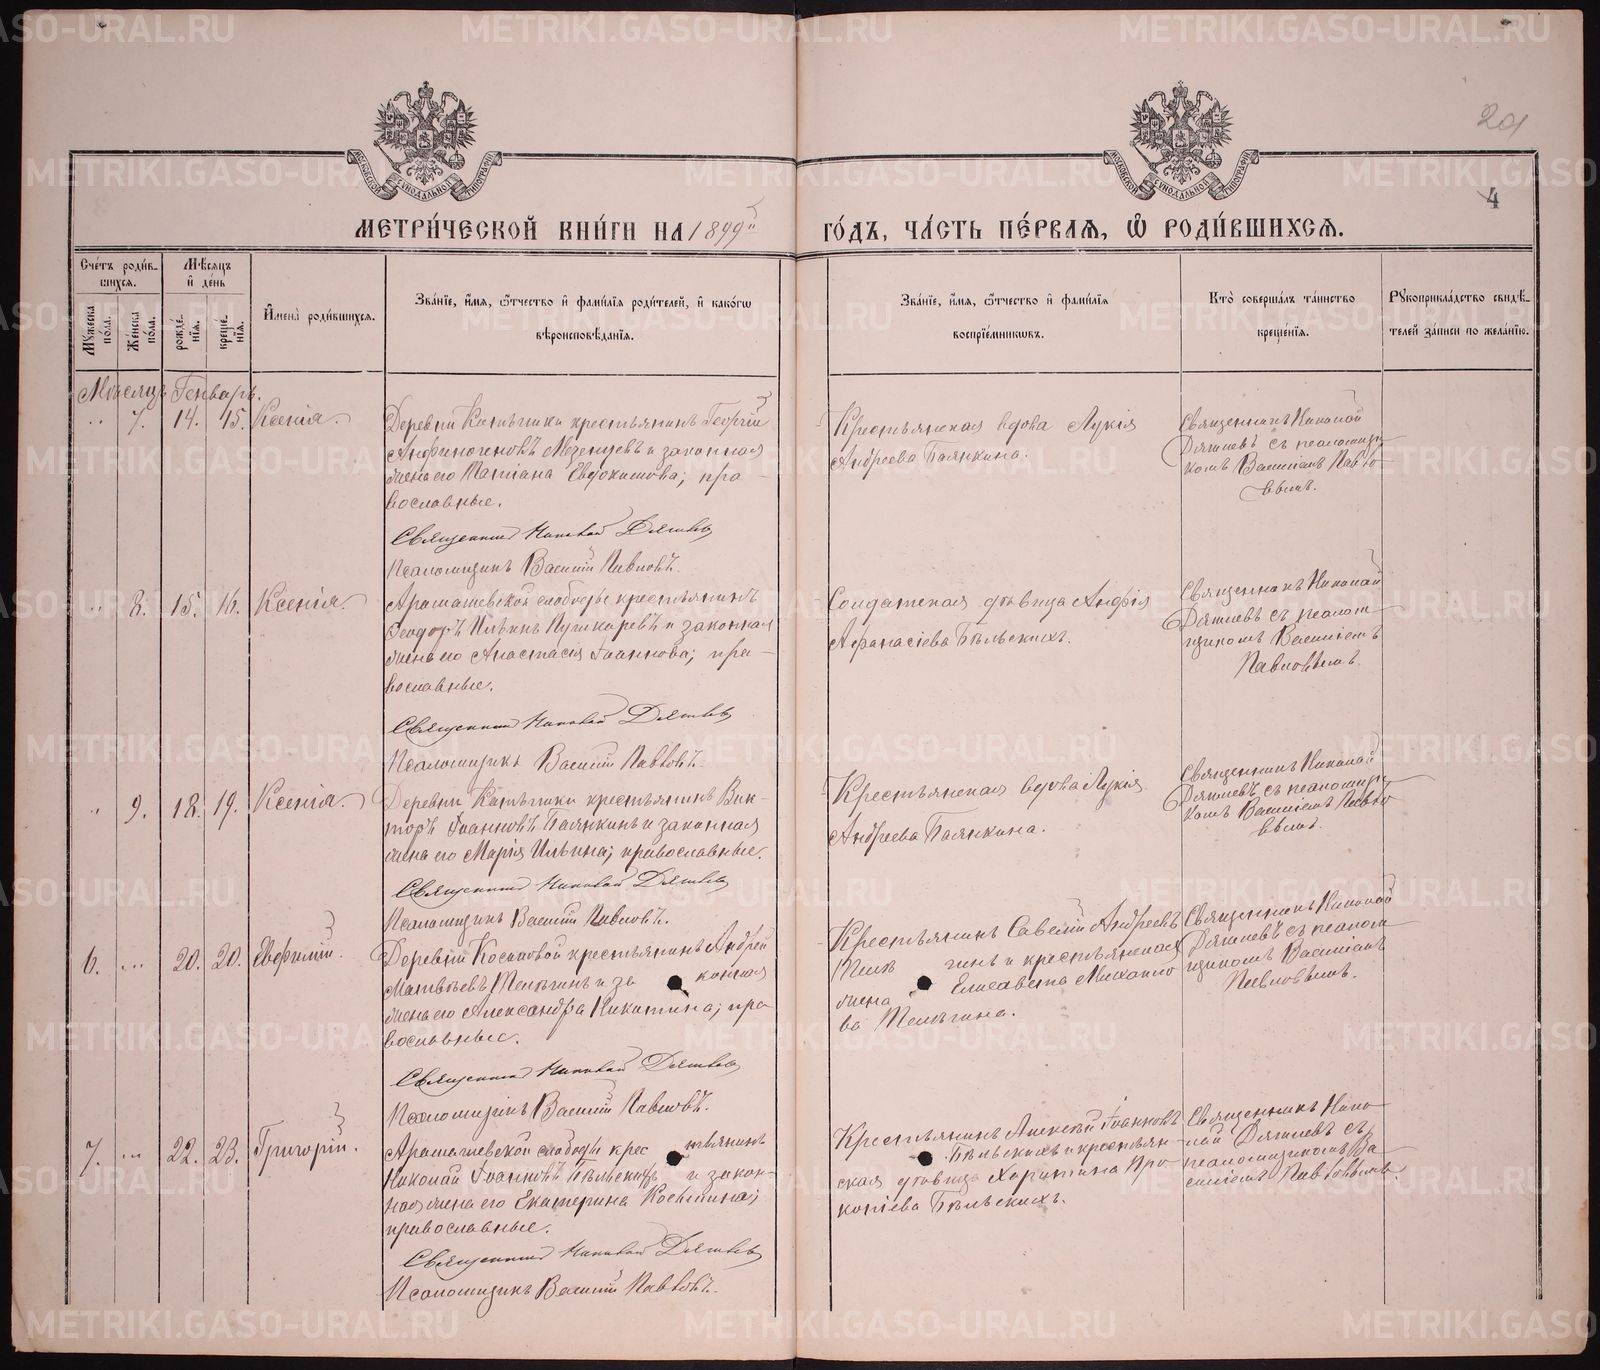 МЕТРИ́ЧЕСКОЙ КНИ́ГИ НА 1899й
ГО́ДЪ, ЧА́СТЬ ПЕ́РВАЯ, Ѡ҆ РОДИ́ВШИХСЯ.
29
4
Сче́тъ роди́в-
шихся.
Мѣ́сяцъ
и҆ де́нь
Мꙋ́жеска
по́ла.
Же́нска
по́ла.
рожде́-
нїѧ.
креще́-
нїѧ.
И҆мена̀ роди́вшихся.
Зва́нїе, и҆́мѧ, ѻ҆́тчество и҆ фами́лїѧ роди́телей, и҆ како́гѡ
вѣроисповѣ́данїѧ.
Зва́нїе, и҆́мѧ, ѻ҆́тчество и҆ фами́лїѧ
воспрїе́мниковъ.
Кто̀ соверша́лъ та́инство
креще́нїѧ.
Рꙋкоприкла́дство свидѣ́-
телей за́писи по жела́нїю.
Мѣсяцъ Генварь.
„ 7. 14. 15. Ксенія.
Деревни Катышки крестьянинъ Георгій
Анфиногеновъ Мезенцевъ и законная
жена его Татіана Евдокимова; пра-
вославные.
Священникъ Николай Дягилевъ
Псаломщикъ Василій Павловъ.
Крестьянская вдова Лукія
Андреева Балякина.
Священникъ Николай
Дягилевъ съ псаломщи-
комъ Василіемъ Павло-
вымъ.
„ 8. 15. 16. Ксенія.
Арамашевской слободы крестьянинъ
Ѳеодоръ Ильинъ Пушкаревъ и законная
жена его Анастасія Іоаннова; пра-
вославные.
Священникъ Николай Дягилевъ
Псаломщикъ Василій Павловъ.
Солдатская дѣвица Анфія
Афанасіева Бѣльскихъ.
Священникъ Николай
Дягилевъ съ псалом-
щикомъ Василіемъ
Павловымъ.
„ 9. 18. 19. Ксенія.
Деревни Катышки крестьянинъ Вик-
торъ Іоанновъ Балякинъ и законная
жена его Марія Ильина; православные.
Священникъ Николай Дягилевъ
Псаломщикъ Василій Павловъ.
Крестьянская вдова Лукія
Андреева Балякина.
Священникъ Николай
Дягилевъ съ псаломщи-
комъ Василіемъ Павло-
вымъ.
6. „ 20. 20. Евфимій.
Деревни Косиковой крестьянинъ Андрей
Матвѣевъ Телѣгинъ и за конная
жена его Александра Никитина; пра-
вославные.
Священникъ Николай Дягилевъ
Псаломщикъ Василій Павловъ.
Крестьянинъ Савелій Андреевъ
Телѣ гинъ и крестьянская
жена Елисавета Михаило-
ва Телѣгина.
Священникъ Николай
Дягилевъ съ псалом-
щикомъ Василіемъ
Павловымъ.
7. „ 22. 23. Григорій.
Арамашевской слободы крес тьянинъ
Николай Іоанновъ Бѣльскихъ и закон-
ная жена его Екатерина Косьмина;
православные.
Священникъ Николай Дягилевъ
Псаломщикъ Василій Павловъ.
Крестьянинъ Алексѣй Іоанновъ
Бѣльскихъ и крестьян-
ская дѣвица Харитина Про-
копіева Бѣльскихъ.
Священникъ Нико-
лай Дягилевъ съ
псаломщикомъ Ва-
силіемъ Павловымъ.
METRIKI.GASO-URAL.RU